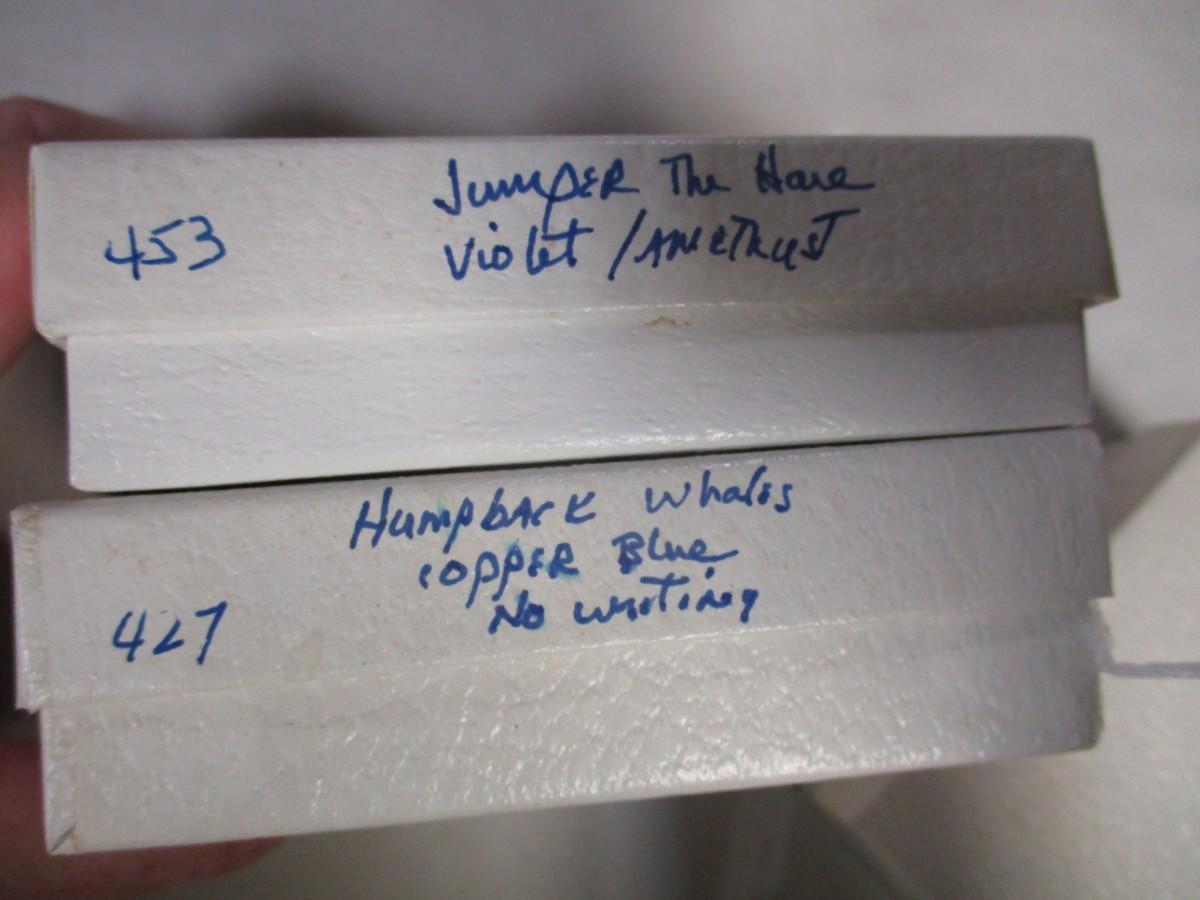 Jumper The Hare
453
Violet / Amethyst
Humpback Whales
Copper Blue
No writing
427